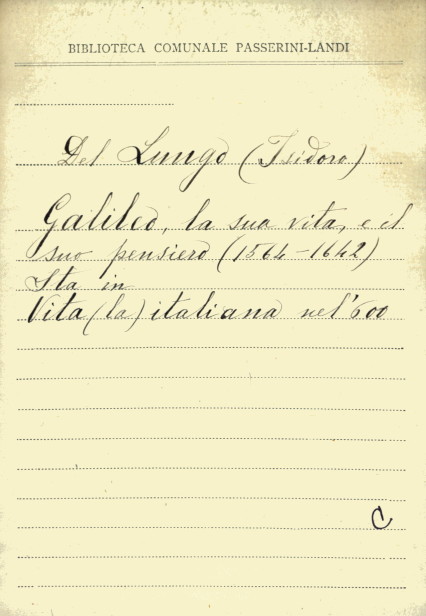 BIBLIOTECA COMUNALE PASSERINI-LANDI
Del Lungo (Isidoro)
Galileo, la sua vita, e il
suo pensiero (1564-1642)
Sta in
Vita (la) italiana nel '600
C